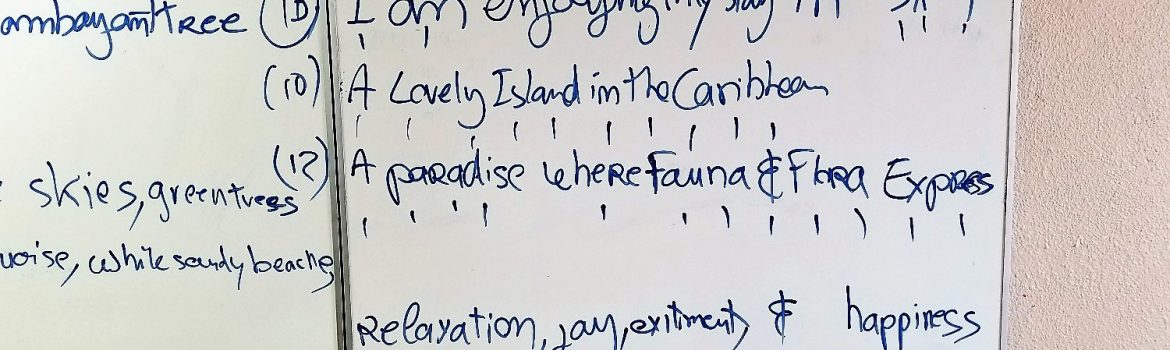 ambayant tree
skies, green trees
uoise, while sandy beache
(10) I am enjoying my stay in
(10) A Lovely Island in the Caribbean
(12) A paradise where Fauna & Flora Express
Relaxation, joy, exitment, & happiness